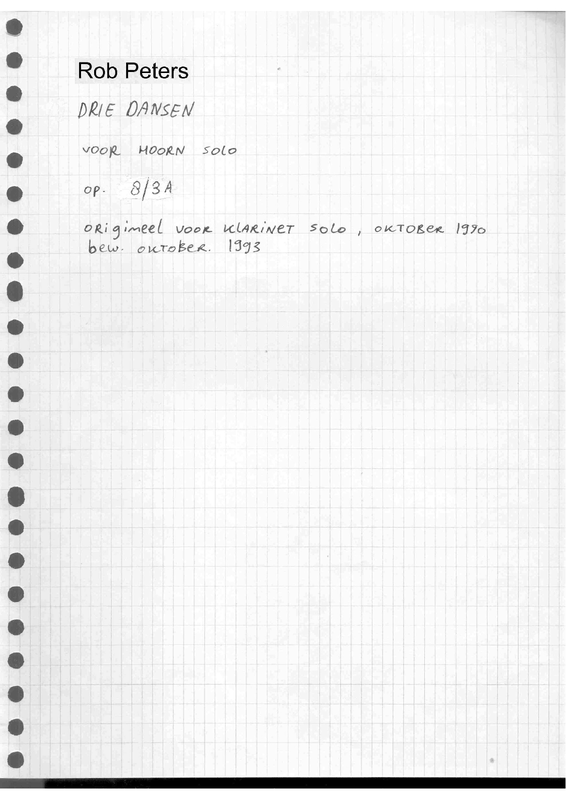 Rob Peters
DRIE DANSEN
VOOR HOORN SOLO
OP. 8/3A
ORigineel VOOR KLARINET SOLO, OKTOBER 1990
bew. OKTOBER. 1993